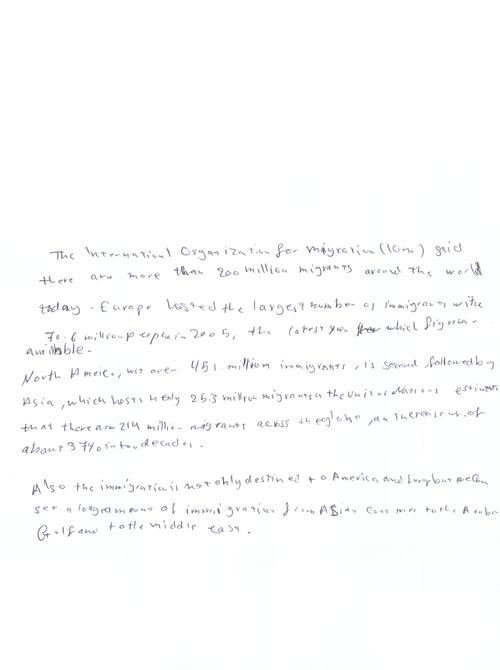 The International Organization for migration (IOM) said
there are more than 200 million migrants around the world
today. Europe hosted the largest number of immigrants with
70.6 million people in 2005, the latest year which figures
available.
North America, with over 45.1 million immigrants, is second followed by
Asia, which hosts nearly 25.3 million migrants the United Nations estimates
that there are 214 million migrants across the globe, an increase of
about 37% in two decades.
Also the immigration is not only destined to America and Europ but we can
see a large amount of immigration from ASian countries to the Arab
Gulf and to the middle east.